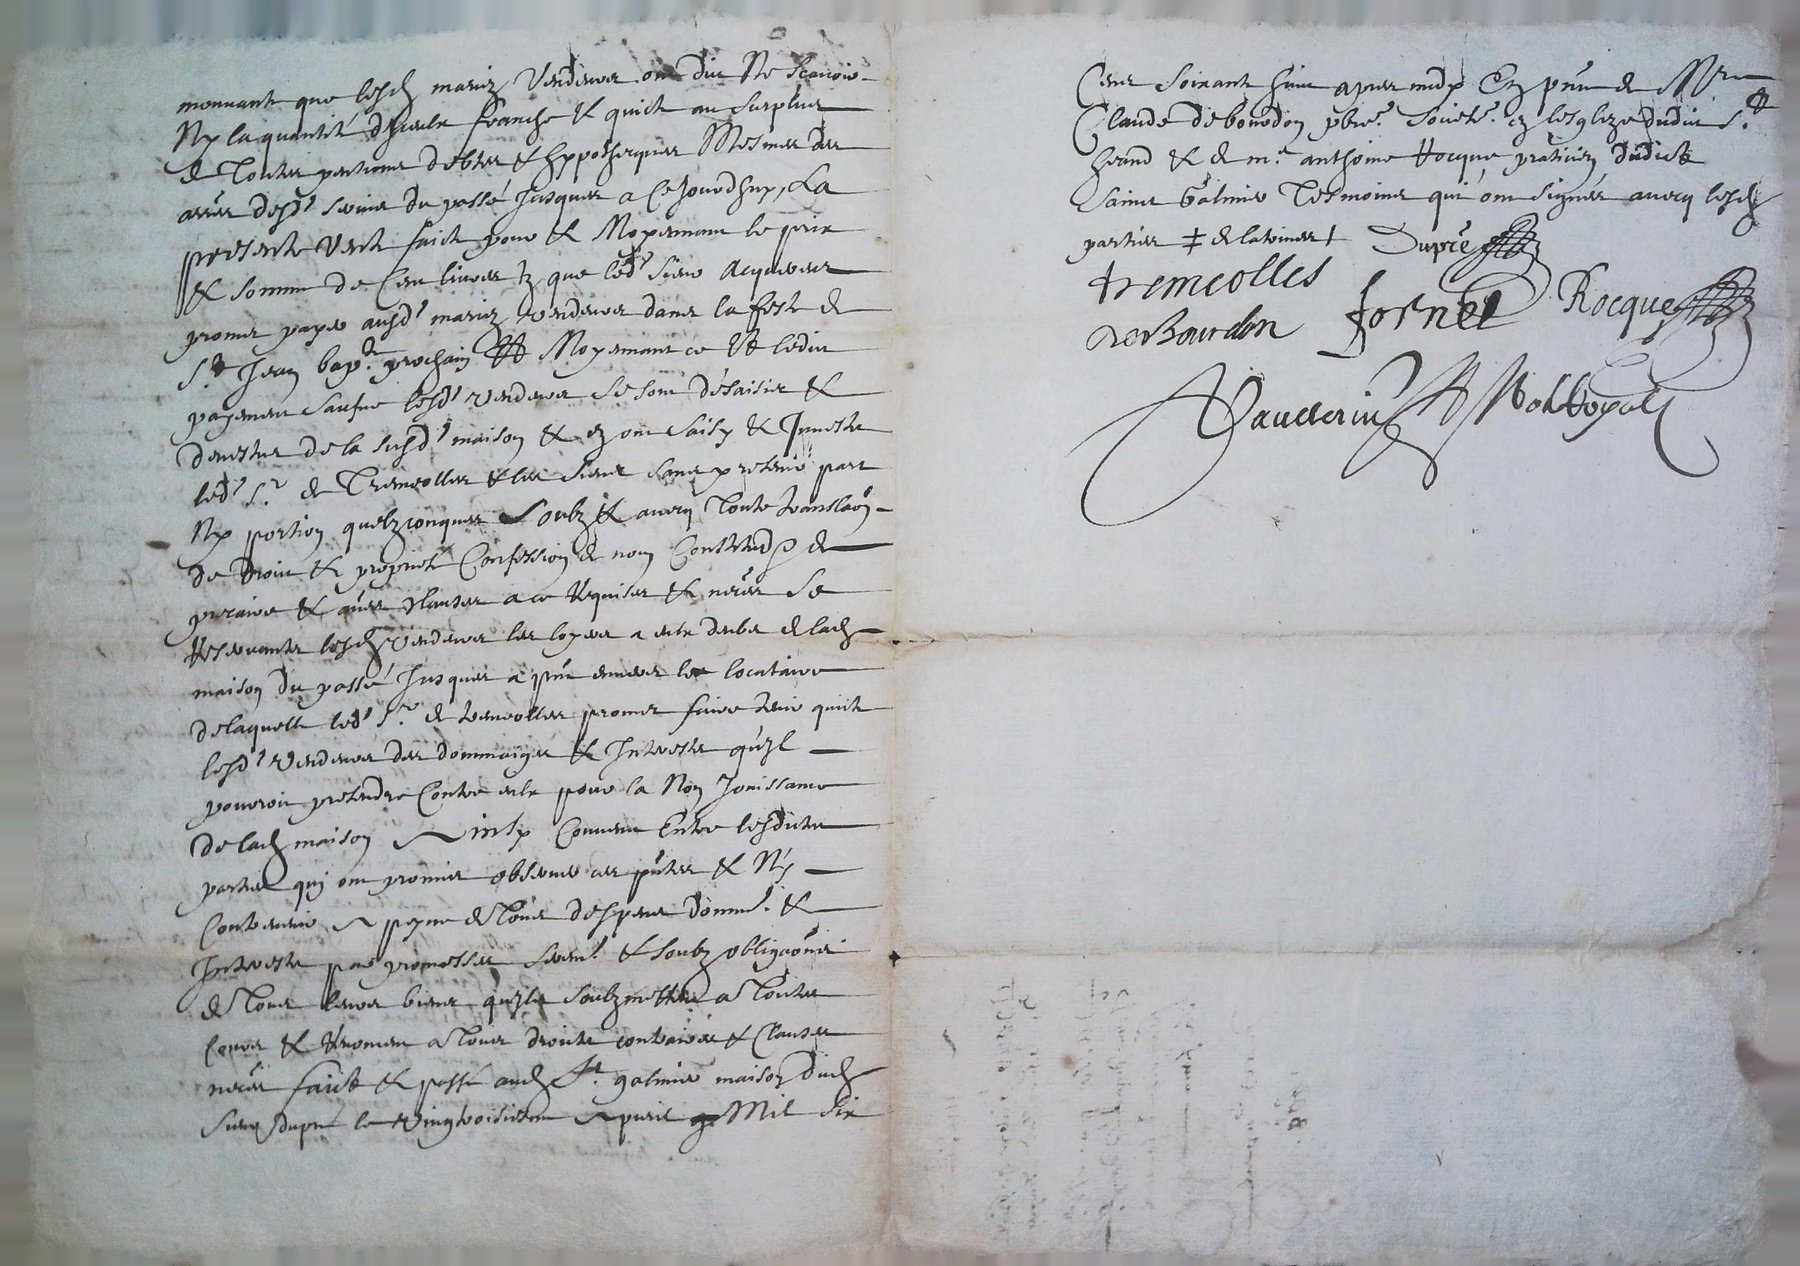 mouvant que lesd mariez vendeurs ont dict ne scavoir
Ny la quantité d'icelle franche & quicte au surplus
de toutes pentions debtes & hyppothecques Mesmes des
arrers desd servis du passé jusques a ce jourdhuy, La
presente vente faicte pour & Moyenant le prix
& somme de Cent livres tz que led sieur acquereur
promet payer ausd mariez vendeurs dans la feste de
St Jean bapte prochain & Moyenant ce & ledict
payement lesd vendeurs se sont désaisis &
devestus de la susd maison & en ont saisy & Investu
led Sr de Tremeolles & les siens sans retenir part
Ny portion quelzconques Soubz & avecq toute translaon
de droict & proprieté Confession de nom Constitud de
precaire & aues clauses a ce requises & neces Se
Reservantz lesd vendeurs les loyers a eulx deubs de lad
maison du passé Jusques a pnt envers le locataire
de laquelle led Sr de tremeolles promet faire tenir quicte
lesd vendeurs des dommaiges & Interestz qu'il
pourroit pretendre Contre eulx pour la Non Jouissance
de lad maison Ainsy Convenu Entre lesdictes
parties qui ont promis observer ces pntes & Ny
Contrevenir A peyne de tous despens domm. &
Interestz par promesses serm. & soubz obligaons
de tous leurs biens qu'ilz soubzmettent a toutes
Cours & Renoncent a tous droictz contraires & Clauses
neces faict & passé aud St galmier maison dud
sieur dupré le vingtroisiesme Apvril Mil six
Cent soixant huict apres midy En pnce de Mre
Claude de bourdon pbre. societ. en lesglize dudict St
heand & de me anthoine Rocque praticien dudict
Sainct Galmier tesmoins qui ont signés avecq lesd
parties ‡ Dupré
tremeolles
De Bourdon fornel Rocque